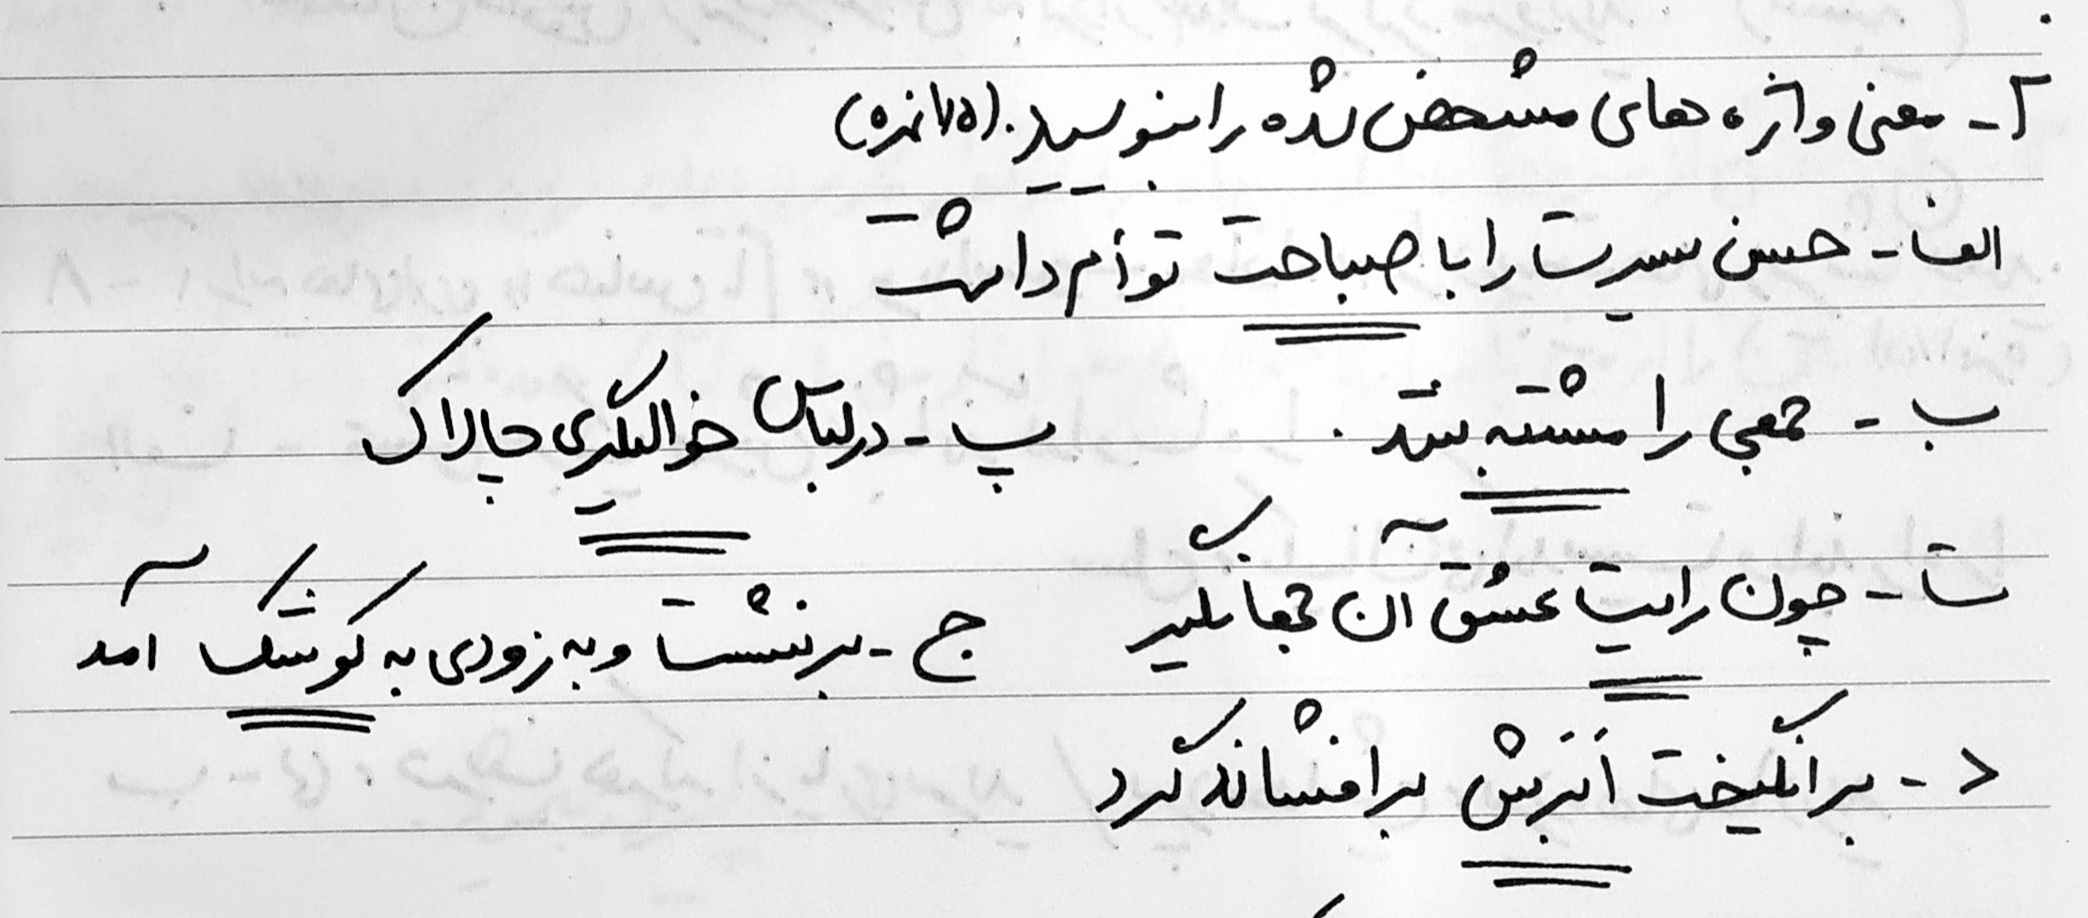 ۲- معنی واژه های مشخص شده را بنویسید. (۱/۵ نمره)
الف - حسن سیرت را با صباحت توأم داشت
ب - جمعی را مشتبه بتند. پ - در لباس خوالیگری چالاک
ت - چون رایت عشق آن جهانگیر ج - برنشست و به زودی به کوشک آمد
د - برانگیخت اَبرَش برافشاند گرد